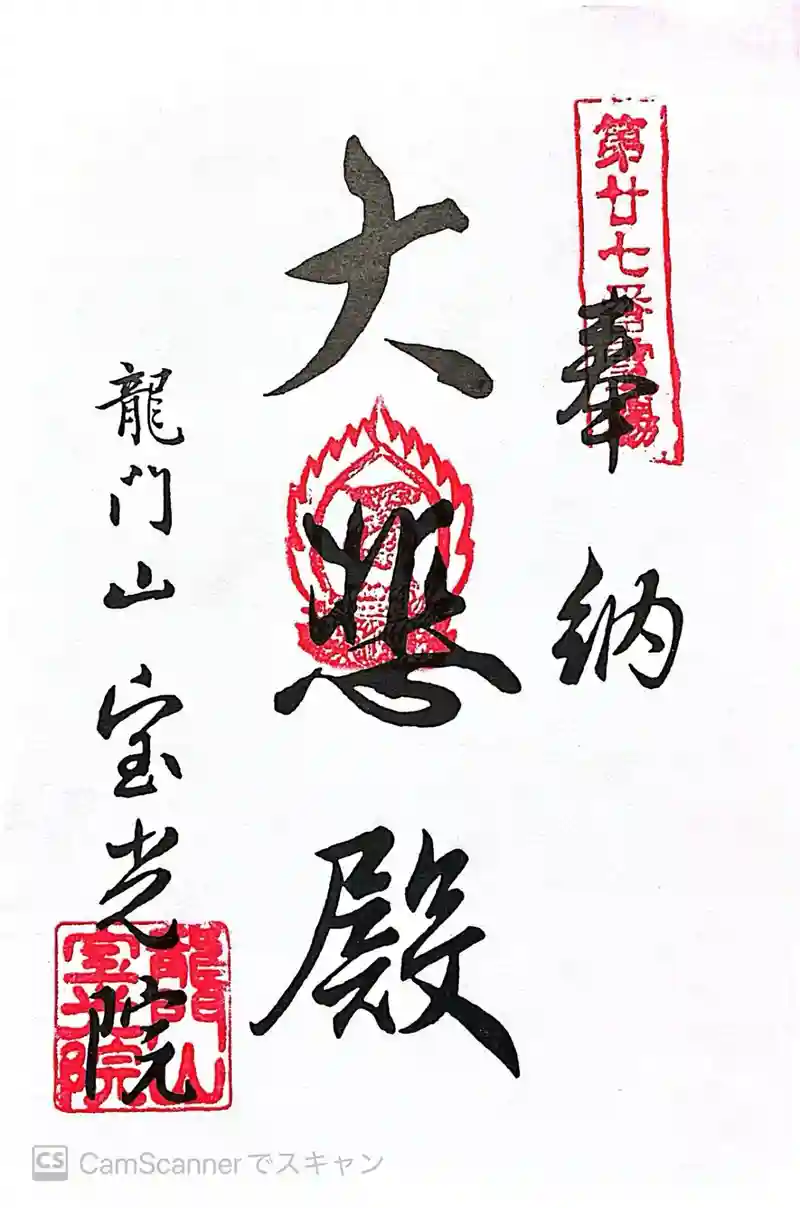 第廿七番霊場
奉納
大悲殿
龍門山 宝光院
龍門山
宝光院
CS CamScannerでスキャン